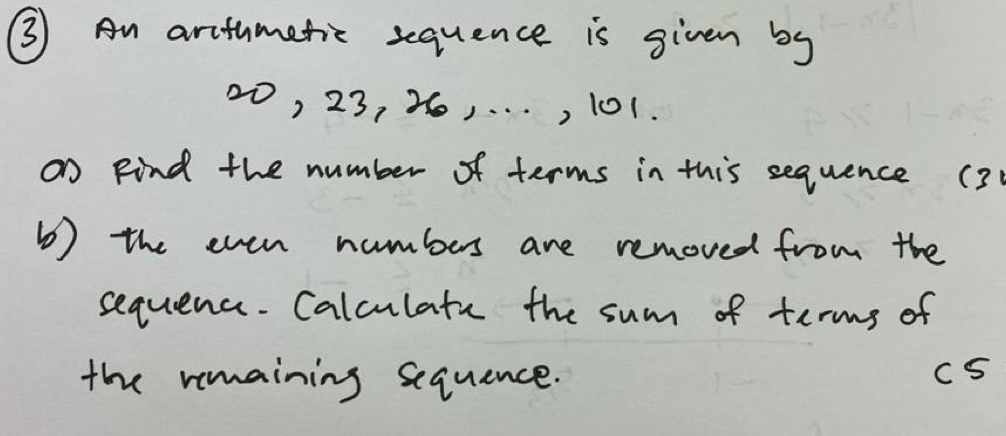 ③ An arithmetic sequence is given by
20, 23, 26, ..., 101.
a) Find the number of terms in this sequence (3
b) the even numbers are removed from the
sequence. Calculate the sum of terms of
the remaining sequence. (5